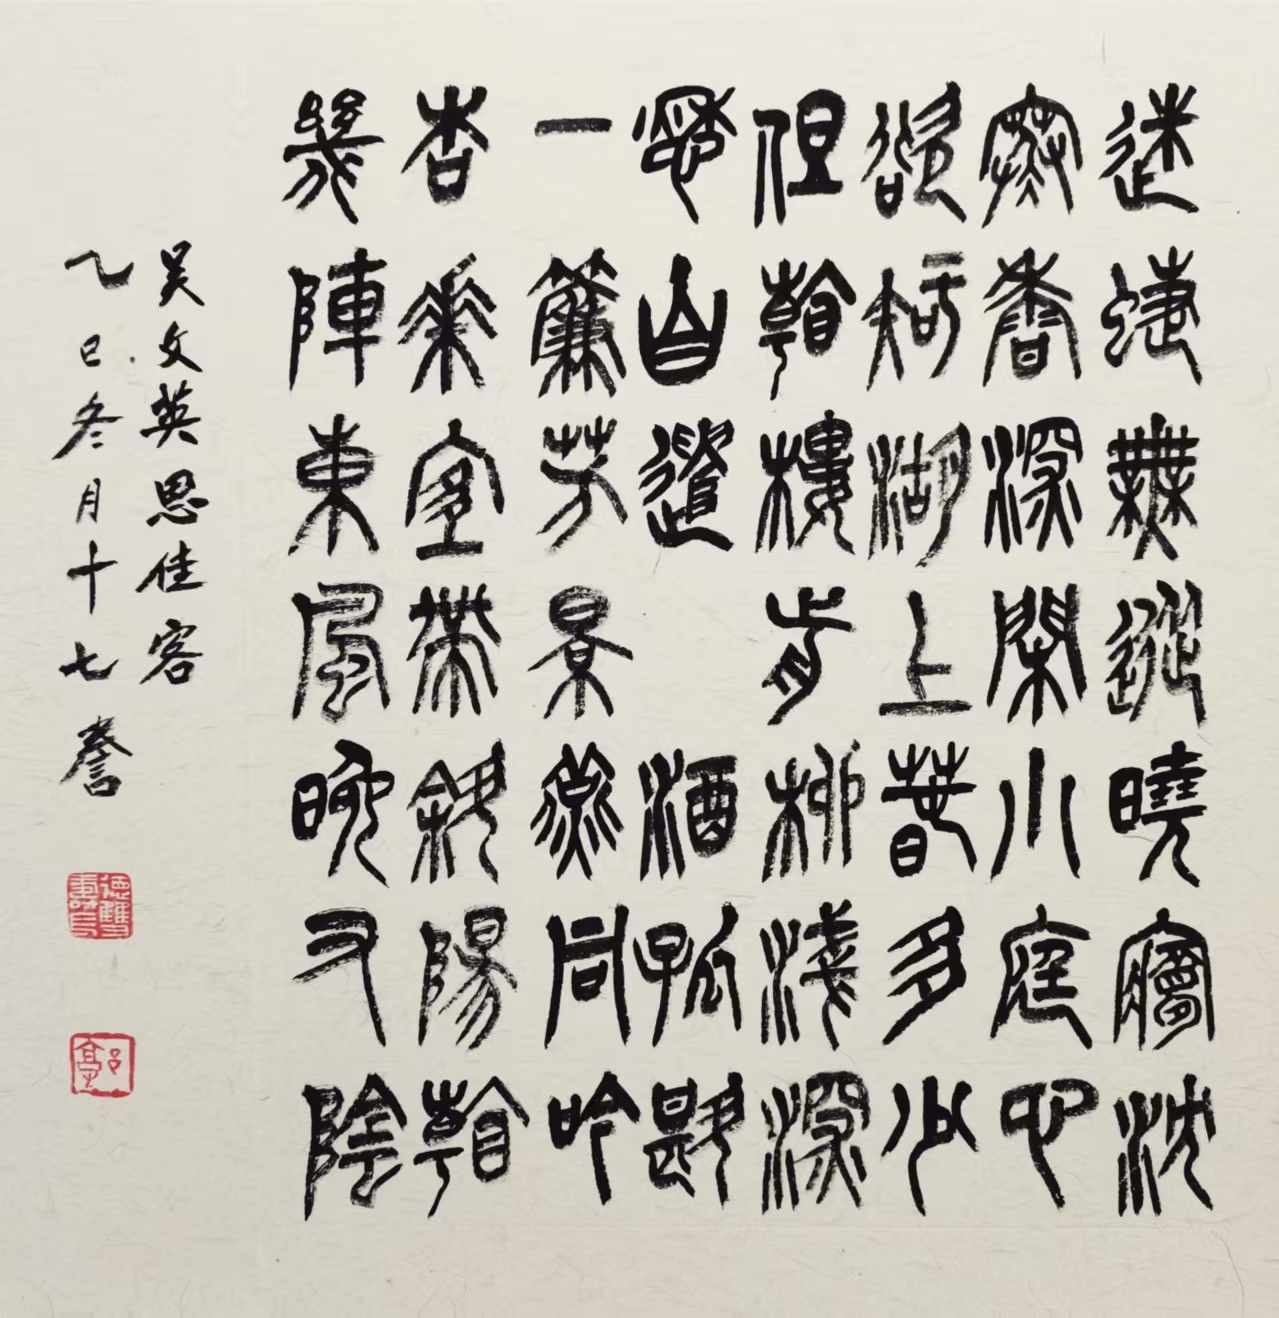 迷蝶無蹤曉夢沈
寒香深閉小庭心
欲知湖上春多少
但看樓前柳淺深
愁自遣 酒孤斟
一簾芳景燕同吟
杏花宜帶斜陽看
幾陣東風晚又陰
吴文英思佳客
乙巳冬月十七 誊